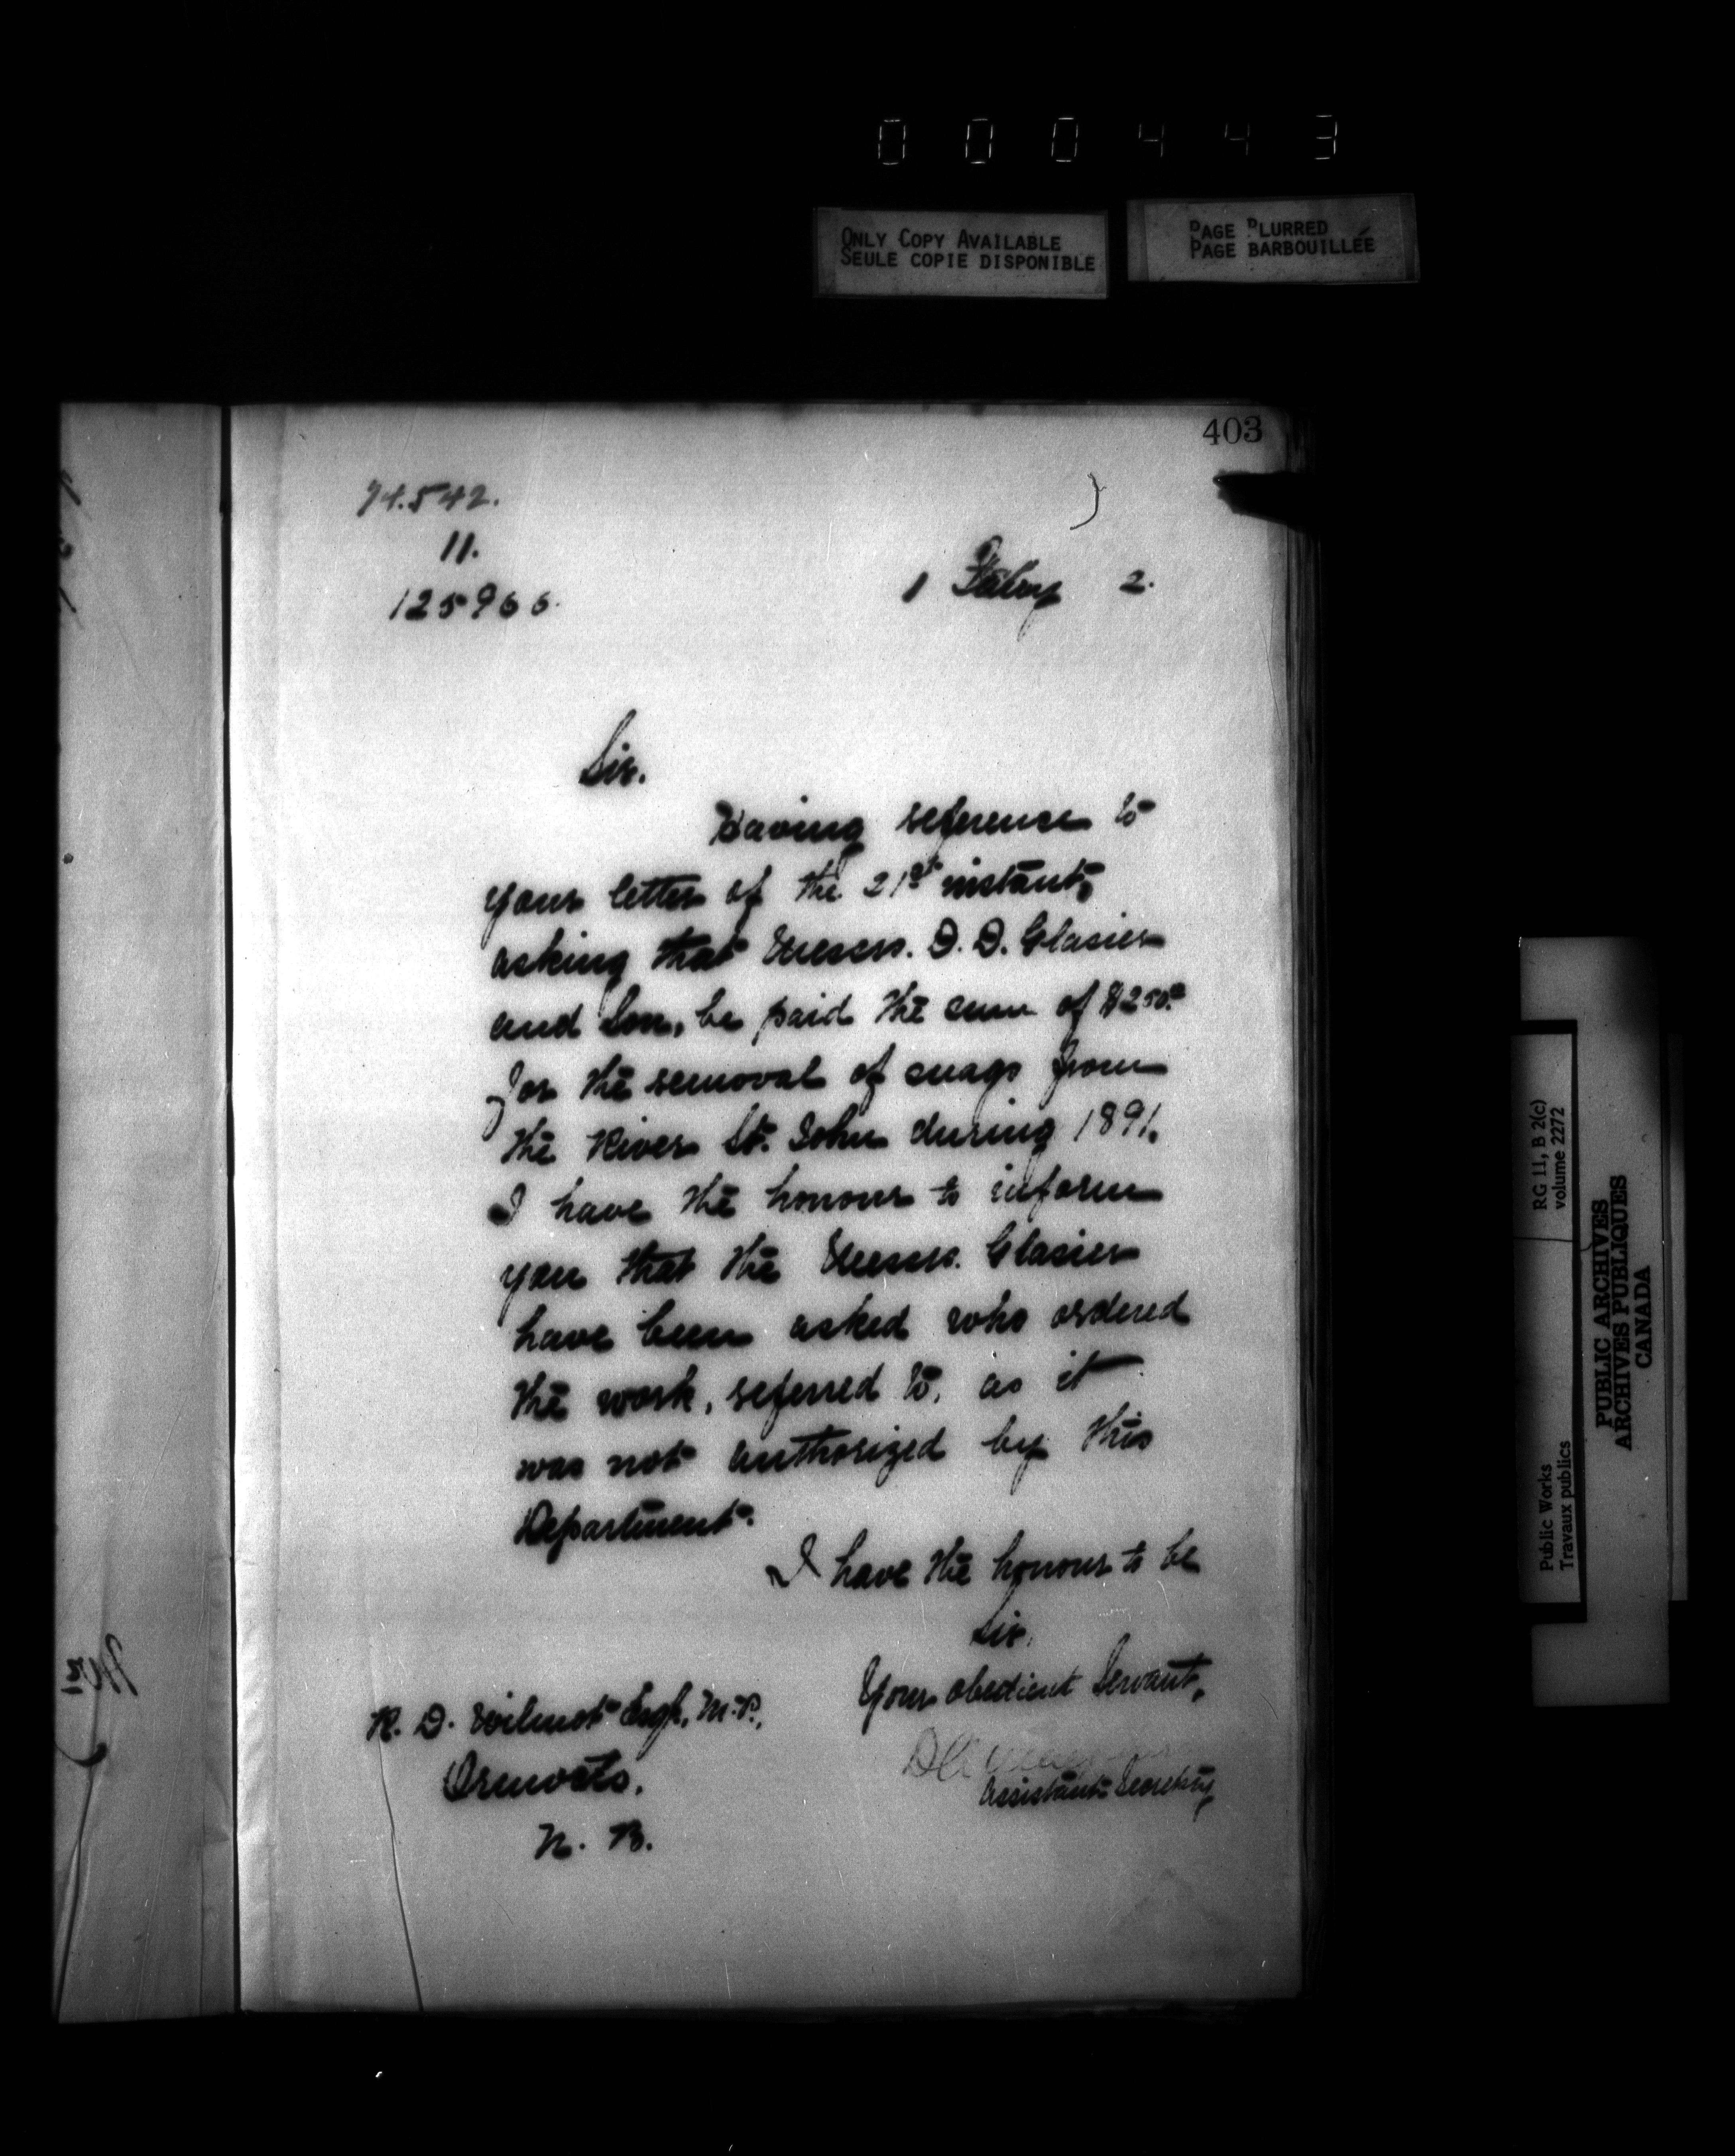 000443
ONLY COPY AVAILABLE
SEULE COPIE DISPONIBLE
PAGE BLURRED
PAGE BARBOUILLÉE
403
74.542.
11.
125966.
1 Febry 2.
Sir.
Having reference to
your letter of the 21st instant,
asking that Messrs. D. D. Glasier
and Son, be paid the sum of $250.00
for the removal of snags from
the River St. John during 1891.
I have the honour to inform
you that the Messrs. Glasier
have been asked who ordered
the work, referred to, as it
was not authorized by this
Department.
I have the honour to be
Sir,
Your obedient Servant,
Assistant Secretary
R. D. Wilmot Esqr, M.P.,
Oromocto.
N. B.
RG 11, B 2(c)
volume 2272
Public Works
Travaux publics
PUBLIC ARCHIVES
ARCHIVES PUBLIQUES
CANADA